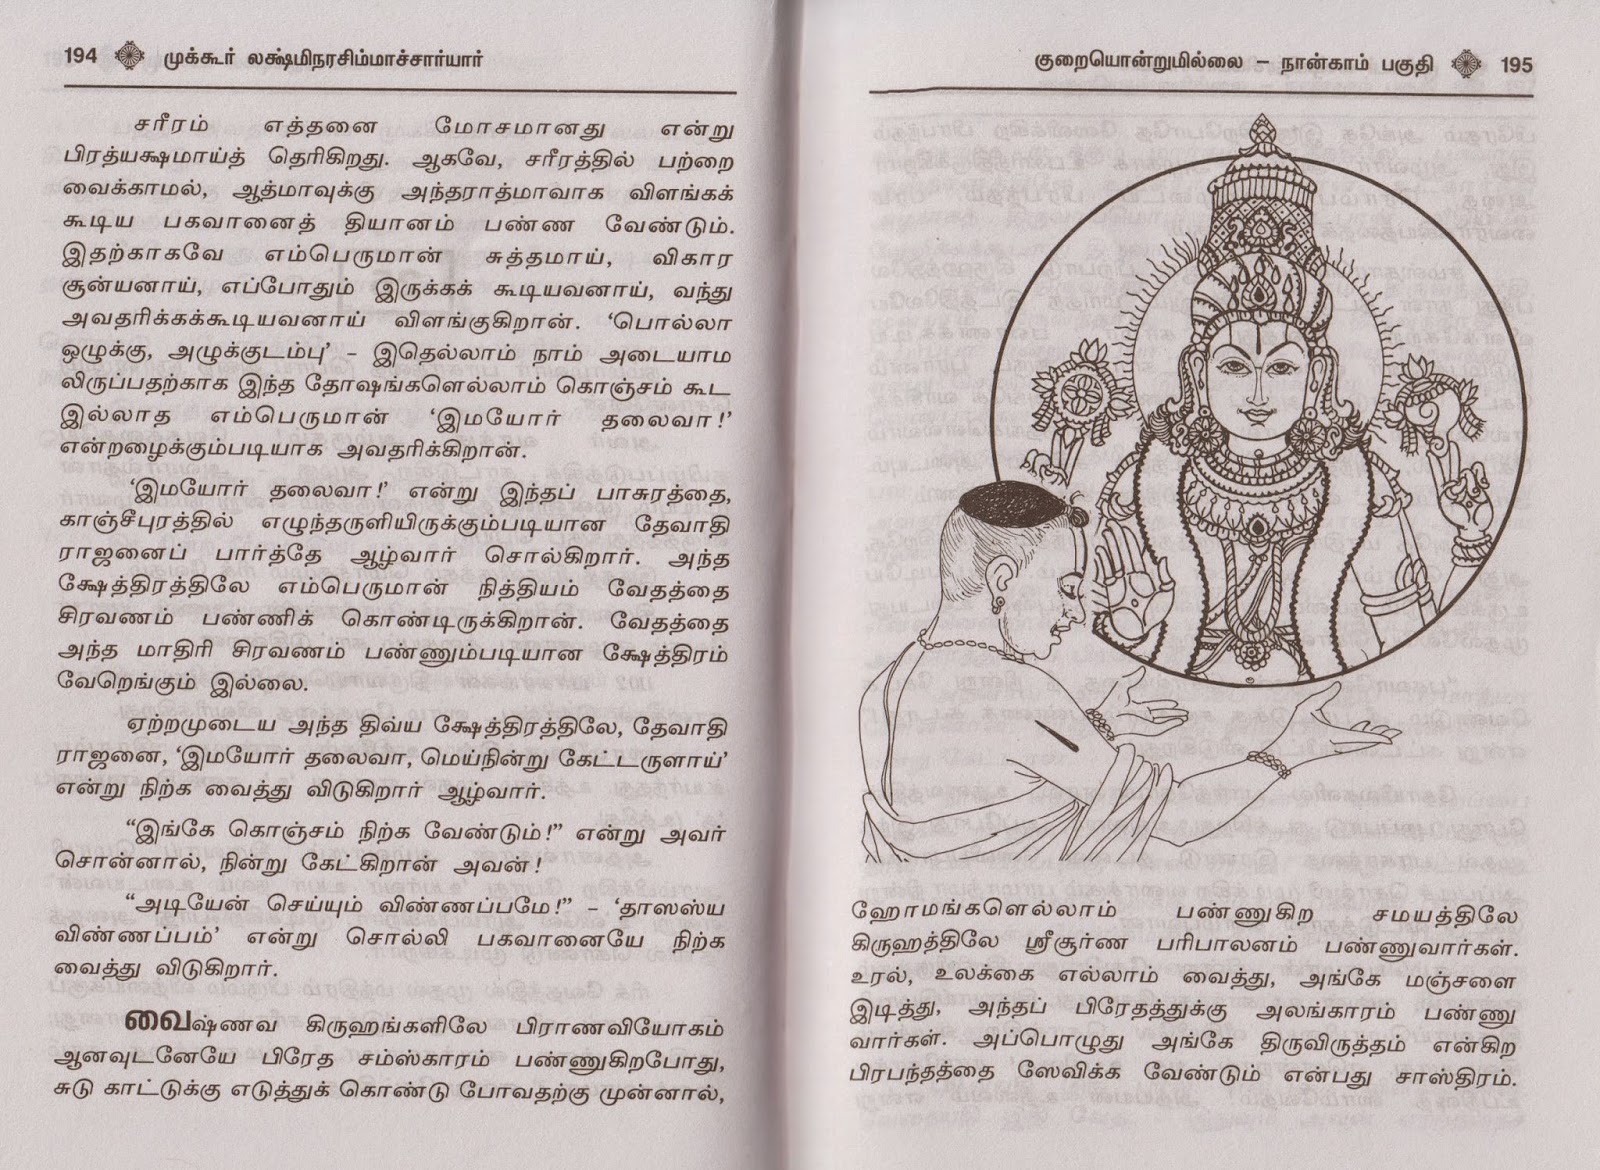 194 முக்கூர் லக்ஷ்மிநரசிம்மாச்சார்யார்
சரீரம் எத்தனை மோசமானது என்று
பிரத்யக்ஷமாய்த் தெரிகிறது. ஆகவே, சரீரத்தில் பற்றை
வைக்காமல், ஆத்மாவுக்கு அந்தராத்மாவாக விளங்கக்
கூடிய பகவானைத் தியானம் பண்ண வேண்டும்.
இதற்காகவே எம்பெருமான் சுத்தமாய், விகார
சூன்யனாய், எப்போதும் இருக்கக் கூடியவனாய், வந்து
அவதரிக்கக்கூடியவனாய் விளங்குகிறான். ‘பொல்லா
ஒழுக்கு, அழுக்குடம்பு’ – இதெல்லாம் நாம் அடையாம
லிருப்பதற்காக இந்த தோஷங்களெல்லாம் கொஞ்சம் கூட
இல்லாத எம்பெருமான் ‘இமயோர் தலைவா!’
என்றழைக்கும்படியாக அவதரிக்கிறான்.
‘இமயோர் தலைவா!’ என்று இந்தப் பாசுரத்தை,
காஞ்சீபுரத்தில் எழுந்தருளியிருக்கும்படியான தேவாதி
ராஜனைப் பார்த்தே ஆழ்வார் சொல்கிறார். அந்த
க்ஷேத்திரத்திலே எம்பெருமான் நித்தியம் வேதத்தை
சிரவணம் பண்ணிக் கொண்டிருக்கிறான். வேதத்தை
அந்த மாதிரி சிரவணம் பண்ணும்படியான க்ஷேத்திரம்
வேறெங்கும் இல்லை.
ஏற்றமுடைய அந்த திவ்ய க்ஷேத்திரத்திலே, தேவாதி
ராஜனை, ‘இமயோர் தலைவா, மெய்நின்று கேட்டருளாய்’
என்று நிற்க வைத்து விடுகிறார் ஆழ்வார்.
“இங்கே கொஞ்சம் நிற்க வேண்டும்!” என்று அவர்
சொன்னால், நின்று கேட்கிறான் அவன்!
“அடியேன் செய்யும் விண்ணப்பமே!” – ‘தாஸஸ்ய
விண்ணப்பம்’ என்று சொல்லி பகவானையே நிற்க
வைத்து விடுகிறார்.
வைஷ்ணவ கிருஹங்களிலே பிராணவியோகம்
ஆனவுடனேயே பிரேத சம்ஸ்காரம் பண்ணுகிறபோது,
சுடு காட்டுக்கு எடுத்துக் கொண்டு போவதற்கு முன்னால்,
குறையொன்றுமில்லை – நான்காம் பகுதி 195
ஹோமங்களெல்லாம் பண்ணுகிற சமயத்திலே
கிருஹத்திலே ஸ்ரீசூர்ண பரிபாலனம் பண்ணுவார்கள்.
உரல், உலக்கை எல்லாம் வைத்து, அங்கே மஞ்சளை
இடித்து, அந்தப் பிரேதத்துக்கு அலங்காரம் பண்ணு
வார்கள். அப்பொழுது அங்கே திருவிருத்தம் என்கிற
பிரபந்தத்தை ஸேவிக்க வேண்டும் என்பது சாஸ்திரம்.